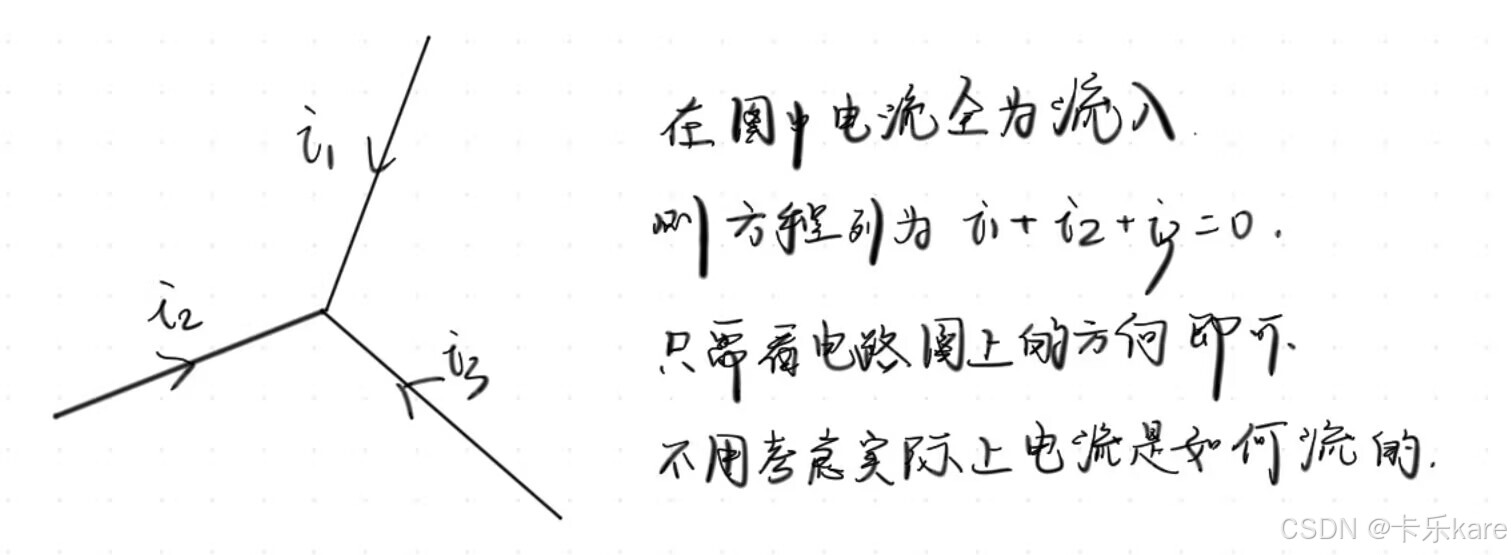 i₁
i₂
i₃
在图中电流全为流入.
则方程列为 i₁+i₂+i₃=0.
只需看电路图上的方向即可.
不用考虑实际上电流是如何流的.
CSDN @卡乐kare